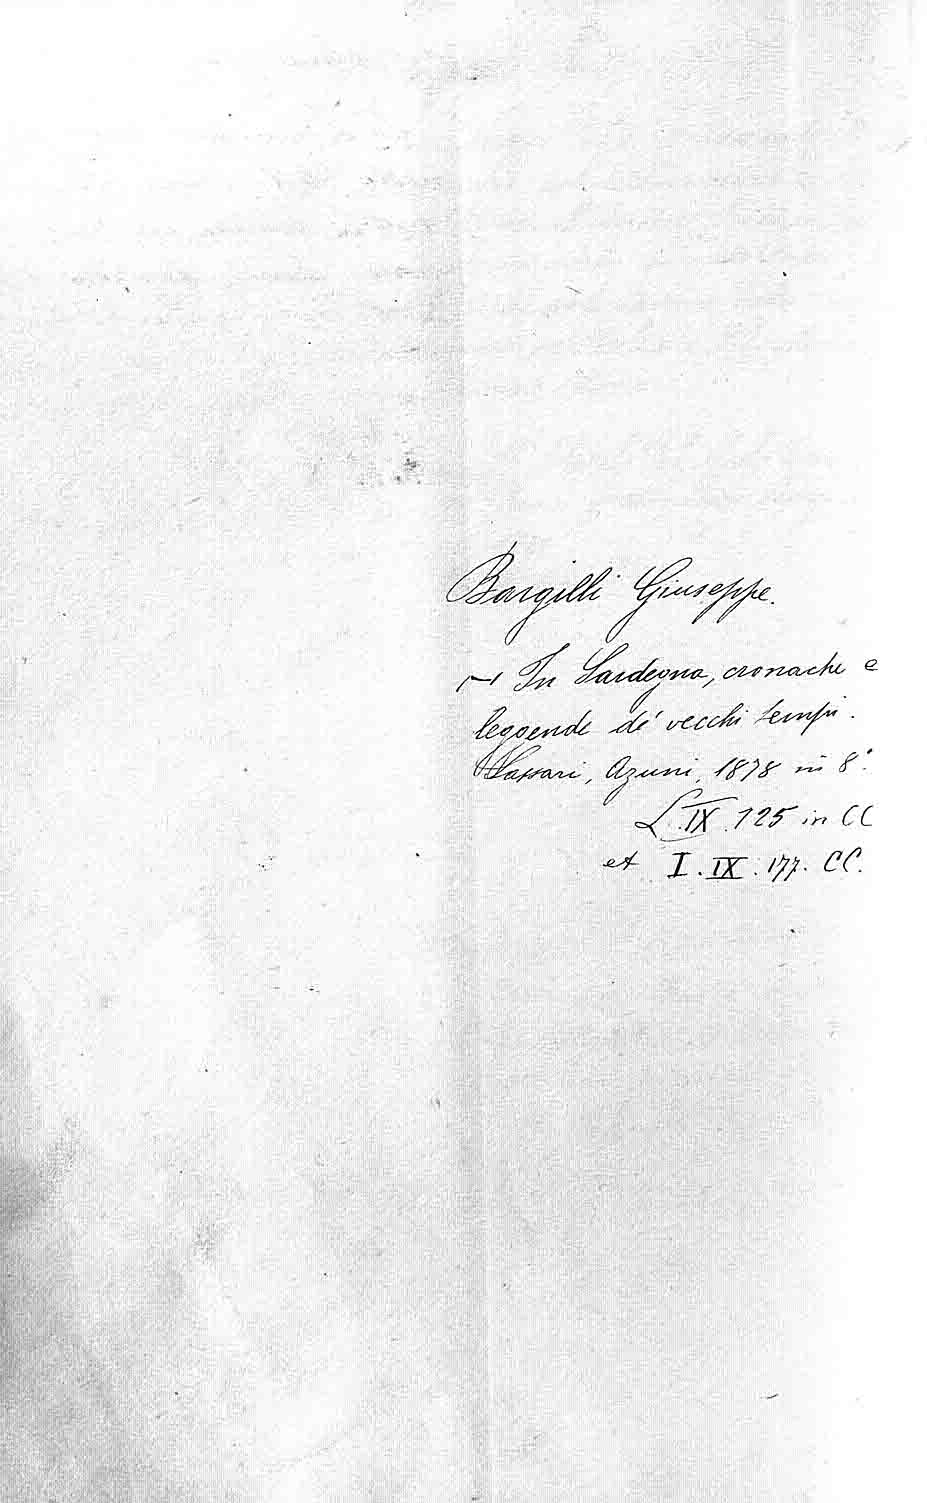 Bargilli Giuseppe.
— In Sardegna, cronache e
leggende de' vecchi tempi.
Sassari, Azuni, 1878 in 8°.
L. IX. 125 in CC
et I. IX. 177. CC.